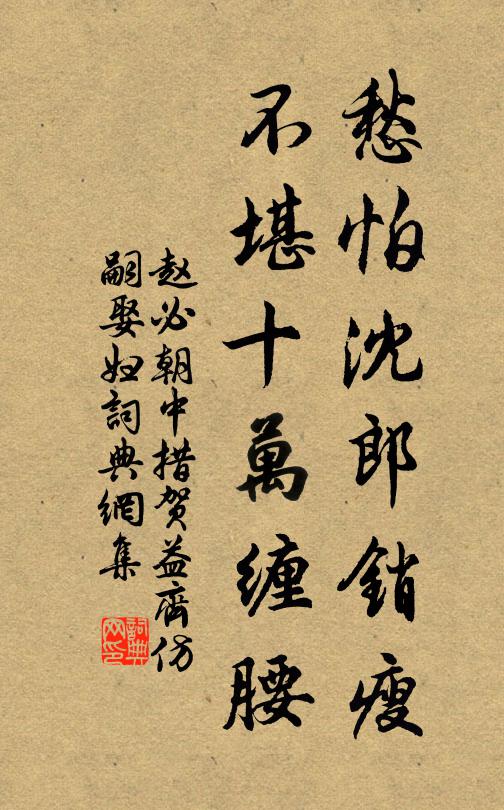 愁怕沈郎銷瘦
不堪十萬纏腰
赵必朝中措贺益齊仿
嗣娶妇詞典網集
詞典网印